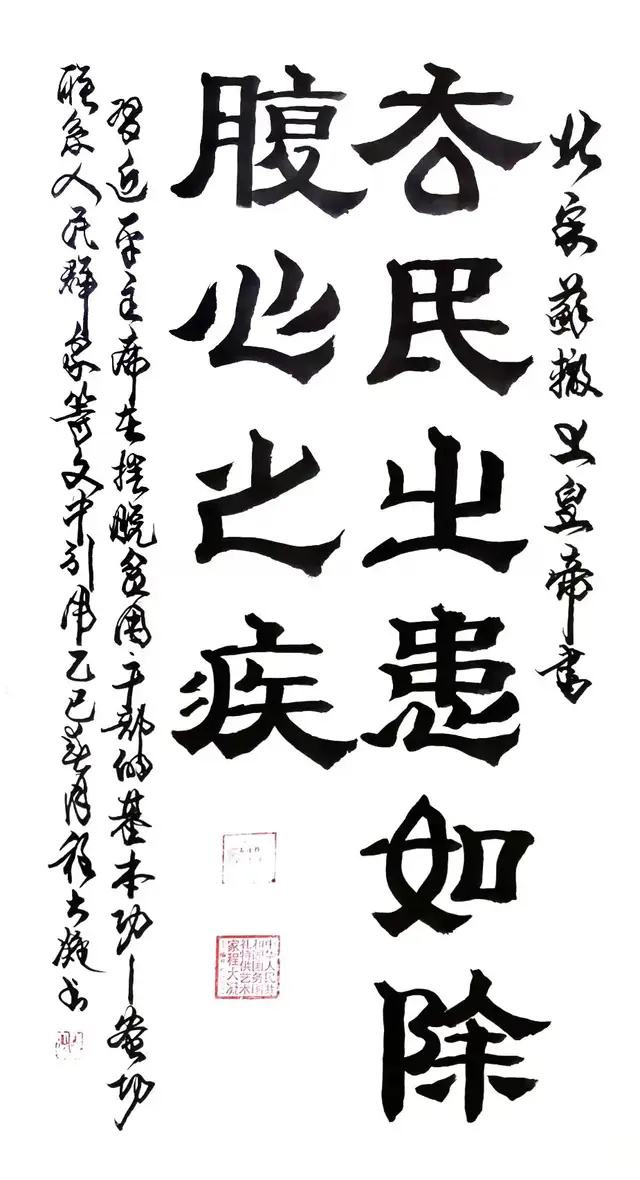 北宋蘇轍上皇帝書
去民之患如除
腹心之疾
習近平主席在摆脱贫困干部的基本功—密切
联系人民群众等文中引用乙巳春月程大书
中华人民共
和国国务
礼特供艺术
家程大